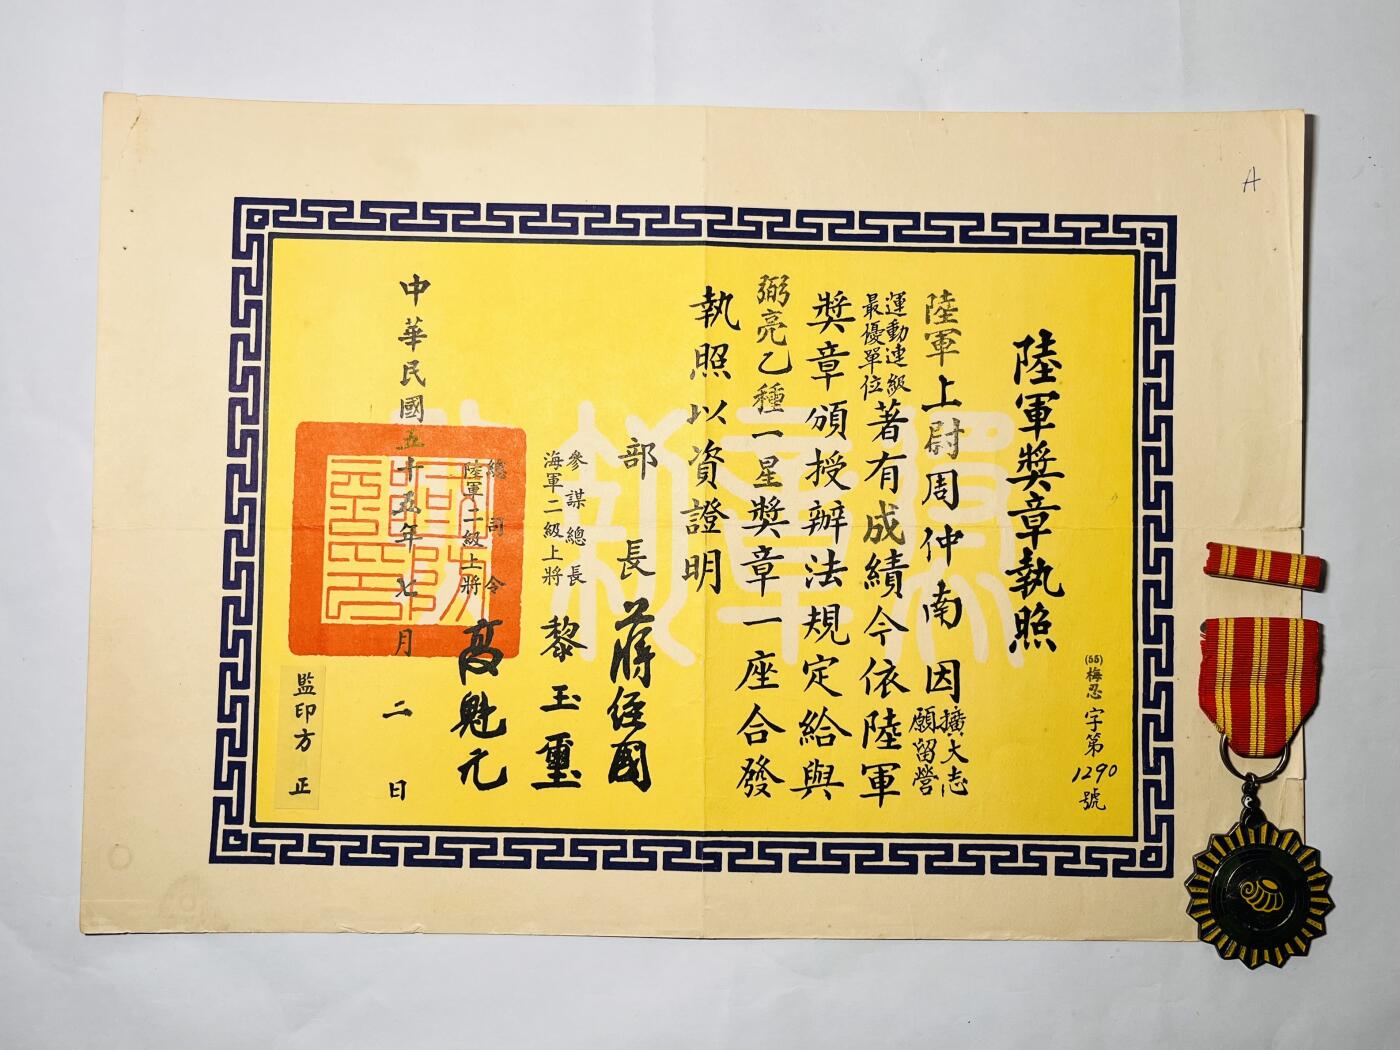 陸軍獎章執照
(55)梅忍字第1290號
陸軍上尉周仲南因擴大志願留營
運動連級最優單位著有成績今依陸軍
獎章頒授辦法規定給與
弼亮乙種一星獎章一座合發
執照以資證明
部長蔣經國
參謀總長海軍二級上將黎玉璽
總司令陸軍二級上將高魁元
中華民國五十五年七月二日
監印方正
A